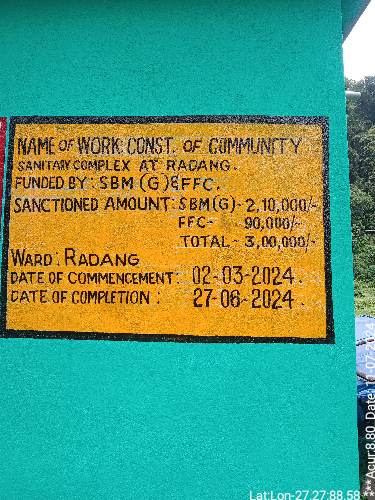 NAME OF WORK: CONST. OF COMMUNITY
SANITARY COMPLEX AT RADANG.
FUNDED BY: SBM (G) & FFC.
SANCTIONED AMOUNT: SBM(G)- 2,10,000/-
FFC- 90,000/-
TOTAL- 3,00,000/-
WARD: RADANG
DATE OF COMMENCEMENT: 02-03-2024.
DATE OF COMPLETION: 27-06-2024.
Lat:Lon-27.27:88.58
***Acur:8.80 Date: 10-07-2024